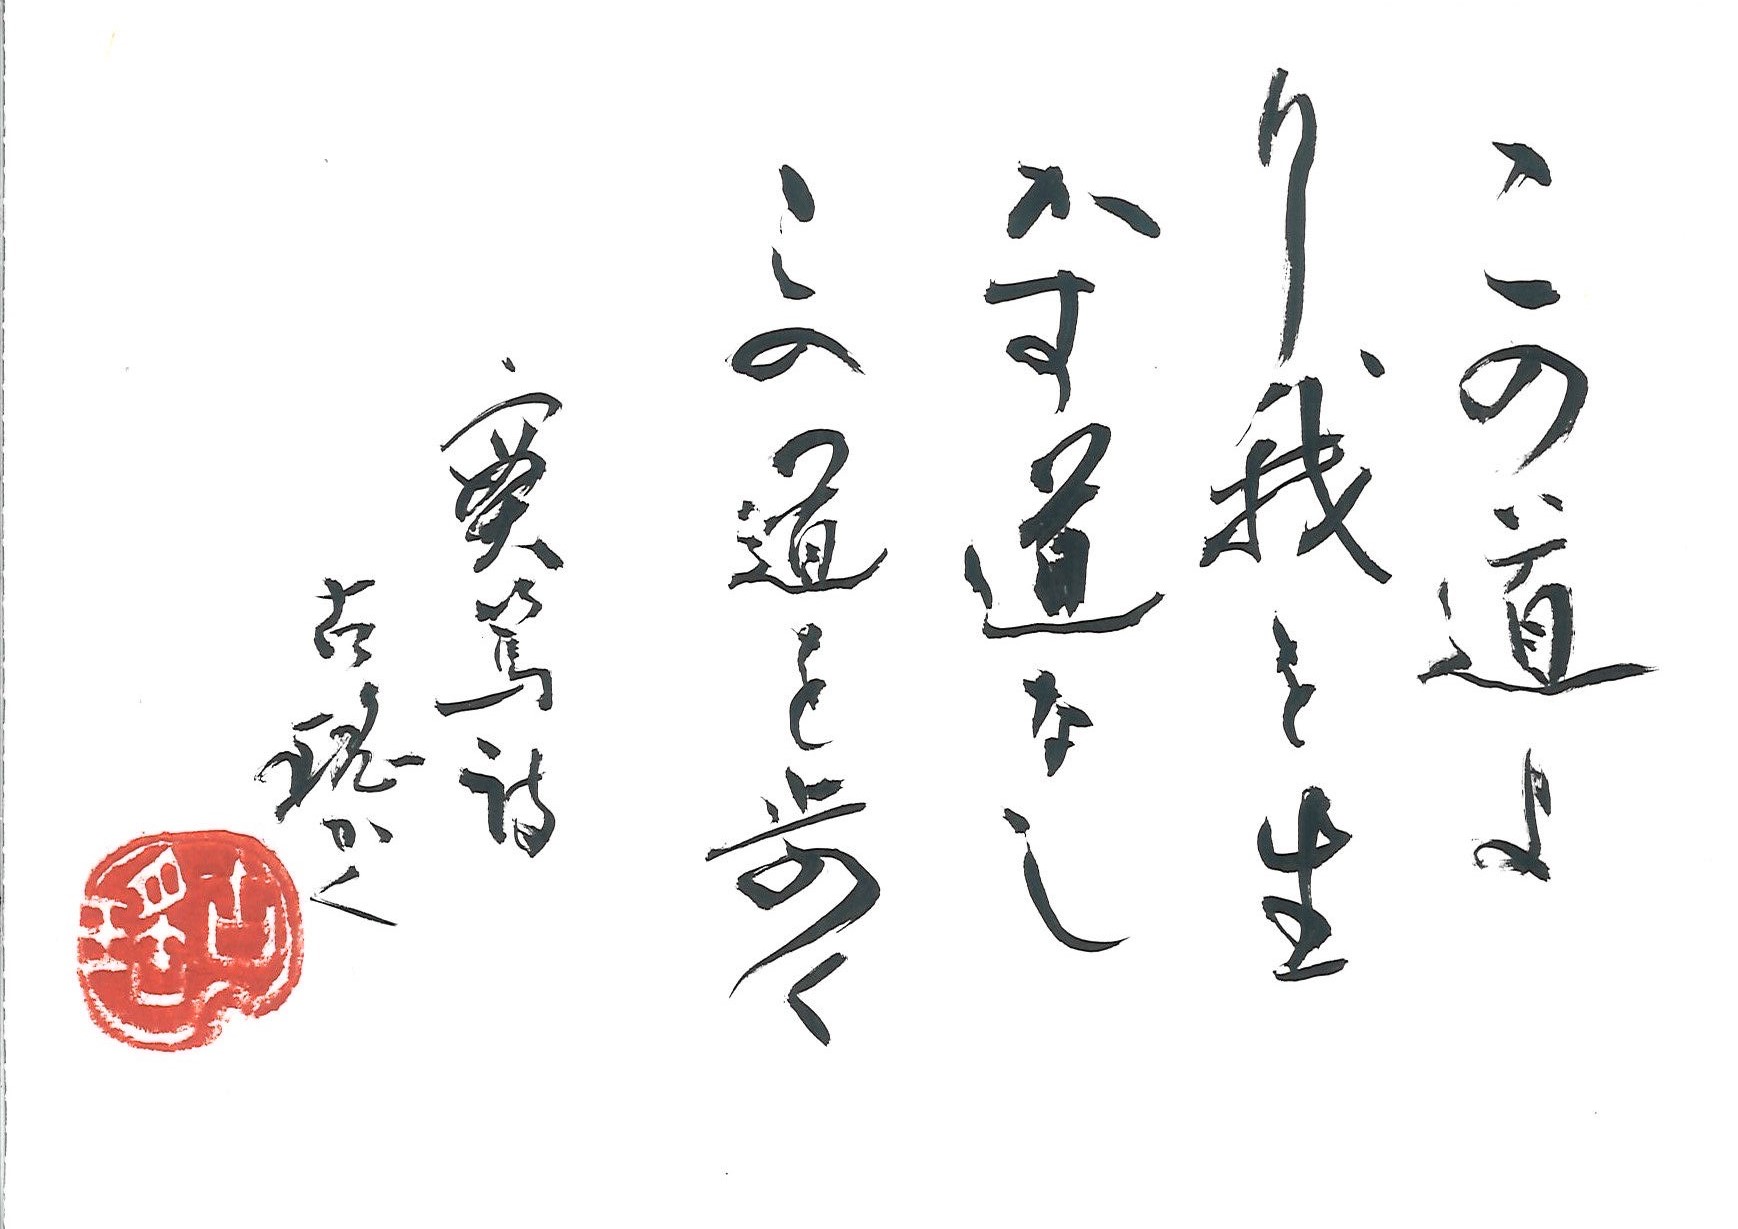 この道よ
り我を生
かす道なし
この道を歩く
実篤詩
かく